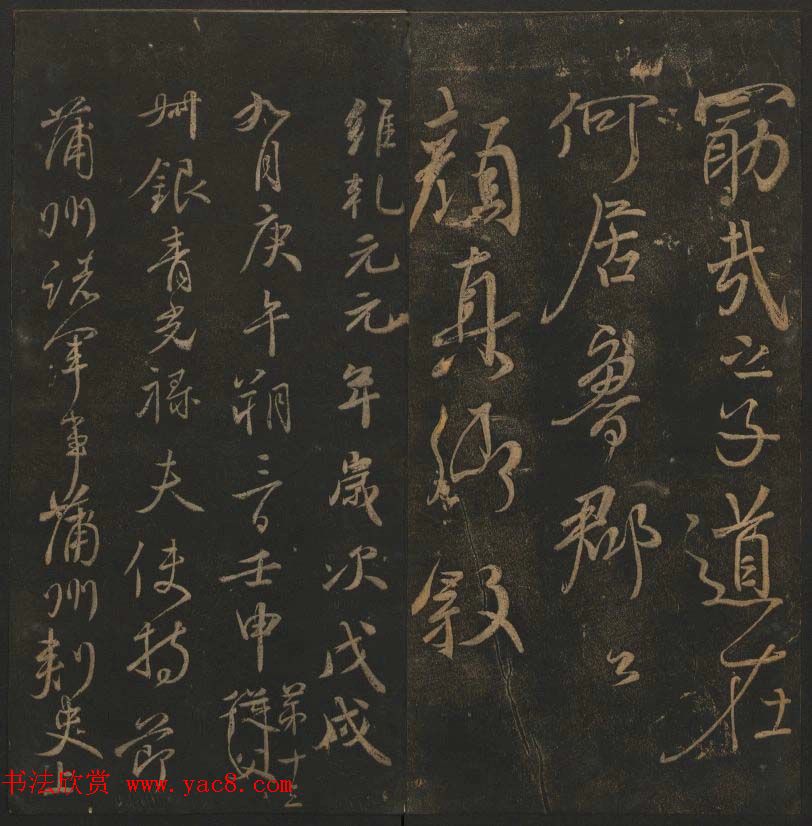 勖哉之子道在
何居魯郡公
顔真卿叙
維乹元元年歲次戊戌
九月庚午朔三日壬申第十三從父
銀青光祿夫使持節
蒲州諸軍事蒲州刺史上
书法欣赏 www.yac8.com